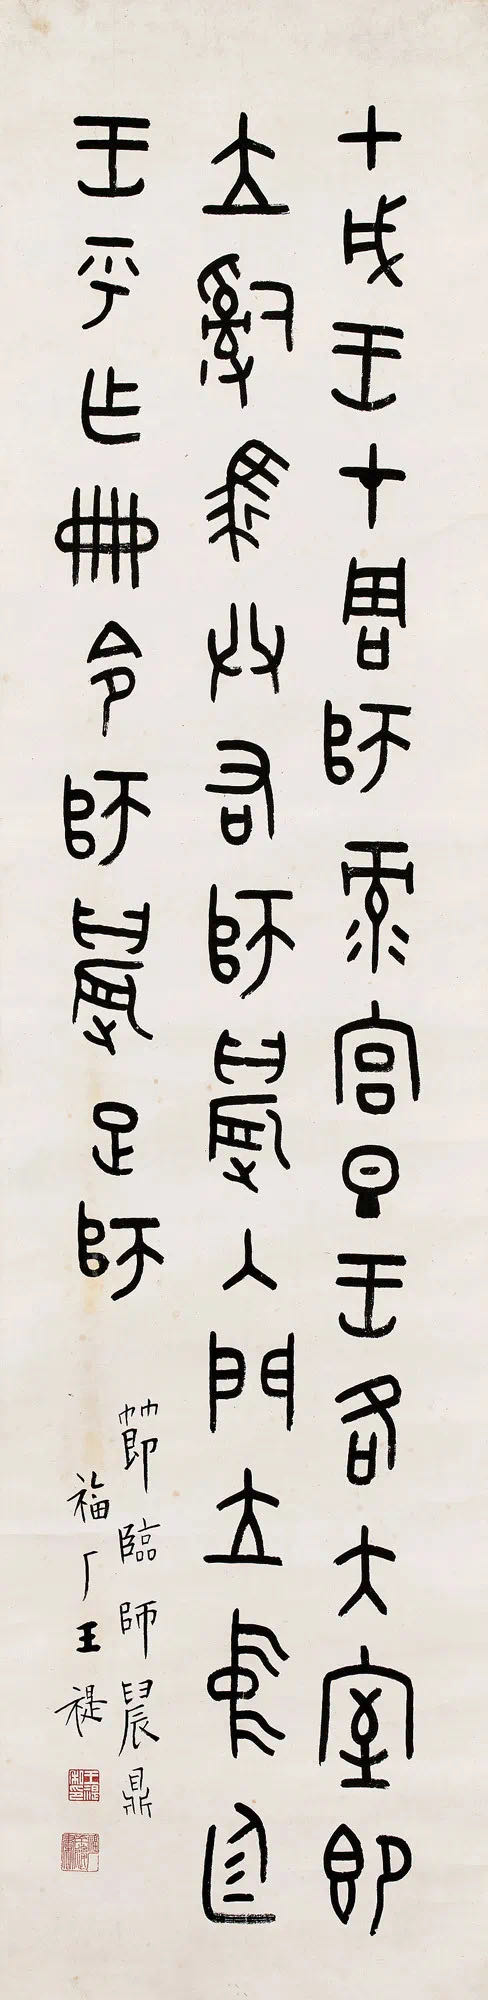 甲戌王才周師彔宮旦王各大室即
立𤔲馬共右師晨入門立中廷
王乎乍冊令師晨足師
節臨師晨鼎
福厂王禔